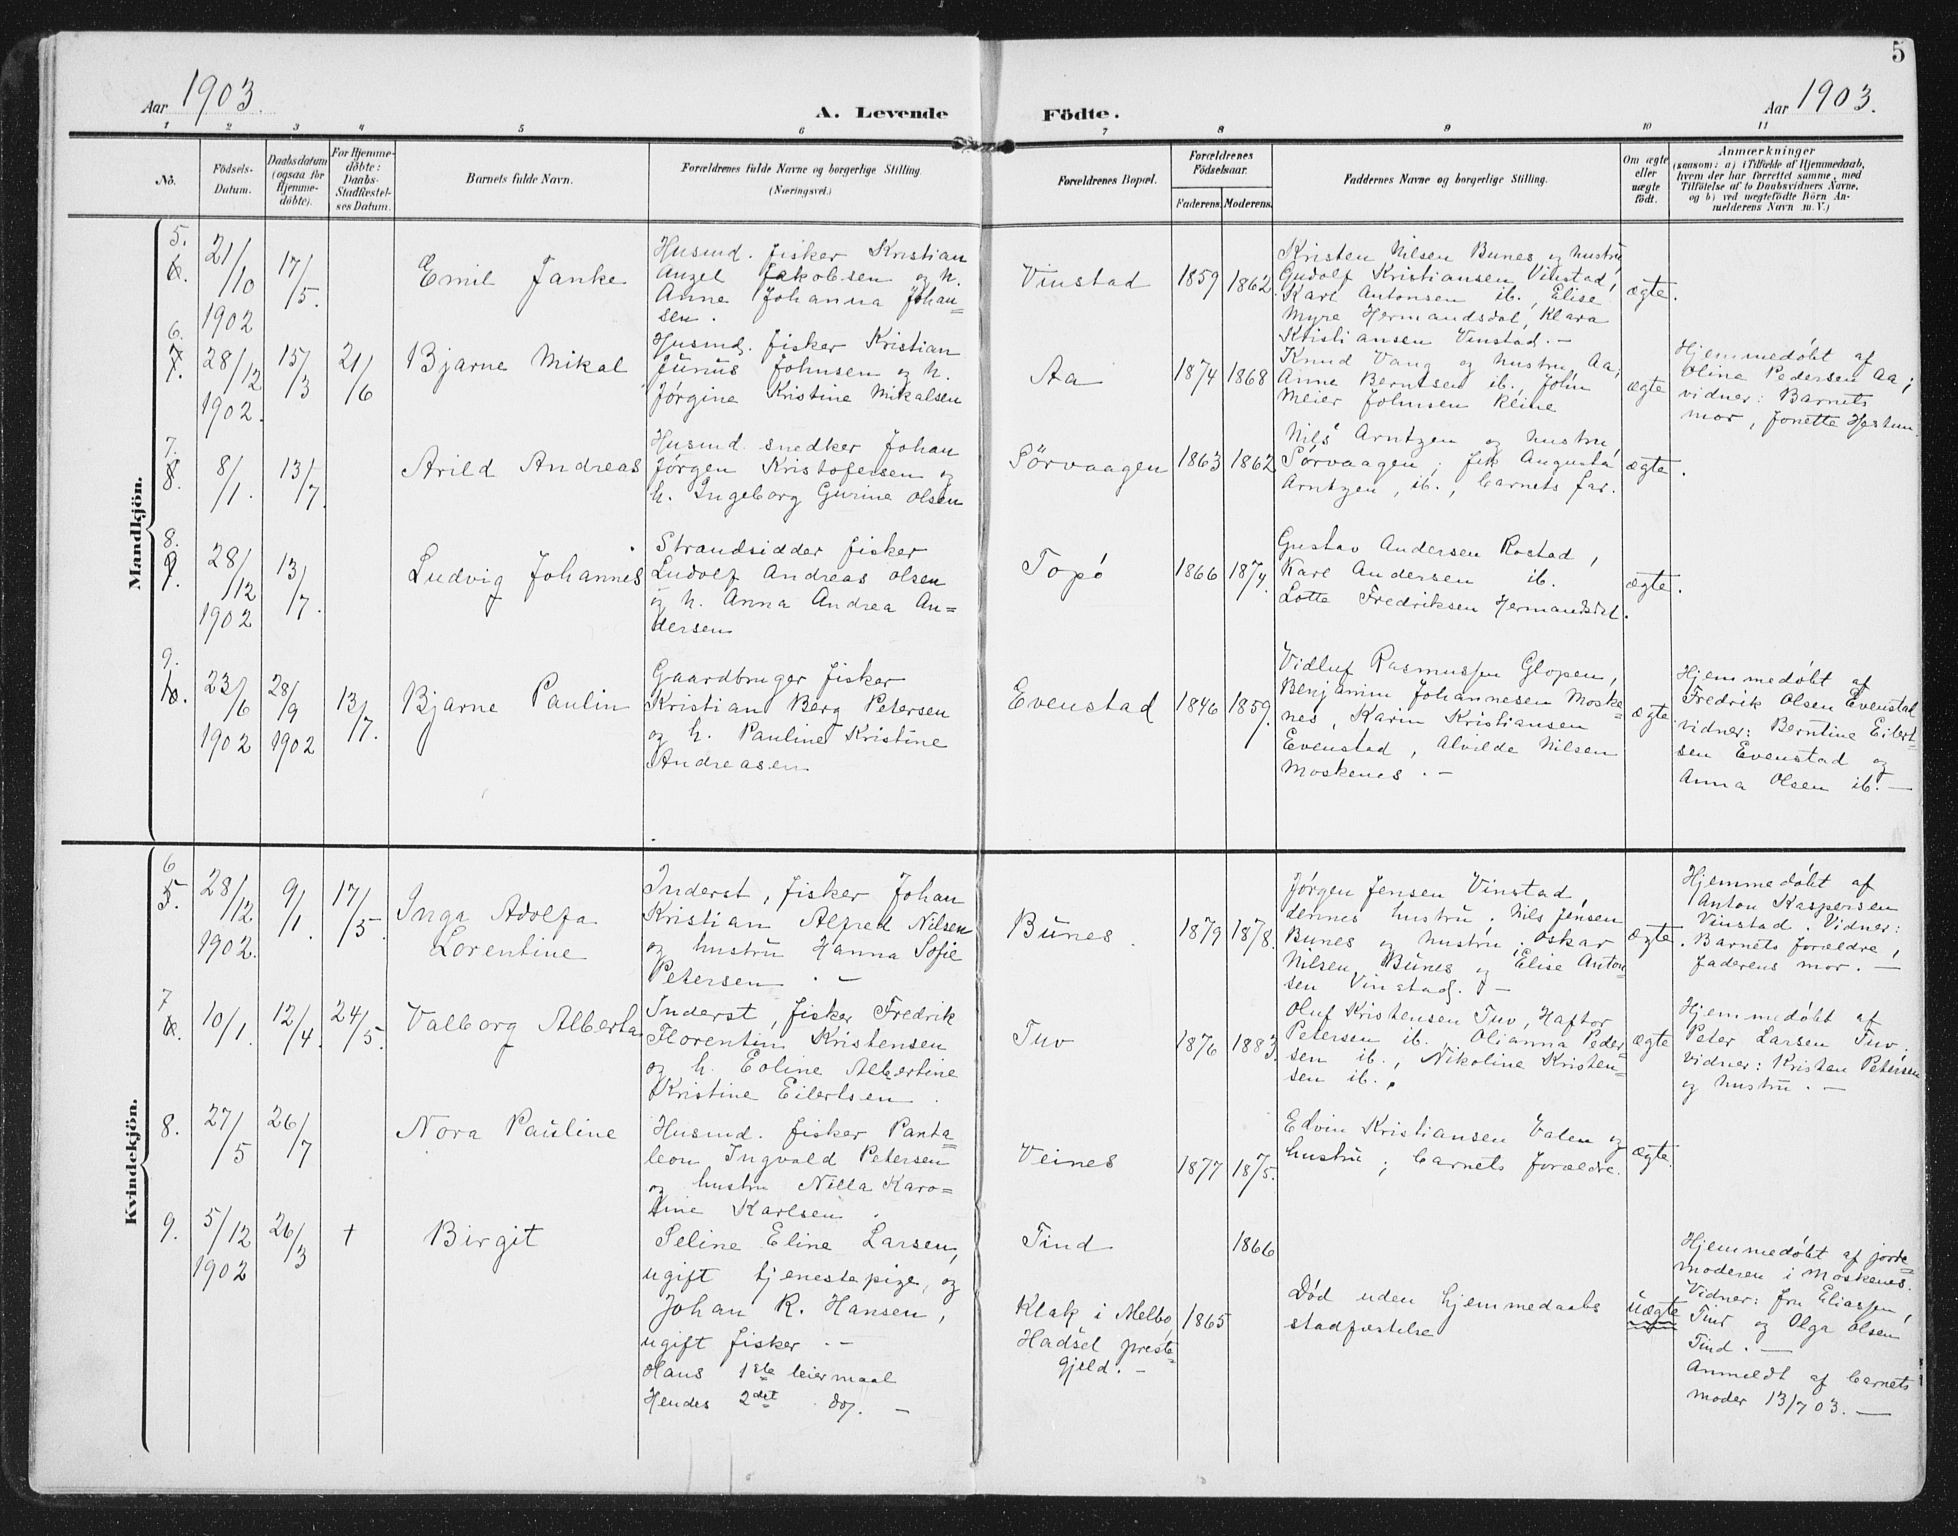 5
Aar 1903.
A. Levende Födte.
Aar 1903.
1 2 3 4 5 6 7 8 9 10 11
No.
Födsels-
Datum.
Daabsdatum
(ogsaa for
Hjemme-
döbte).
For Hjemme-
döbte:
Daabs-
Stadfæstel-
ses Datum.
Barnets fulde Navn.
Forældrenes fulde Navne og borgerlige Stilling.
(Næringsvei.)
Forældrenes Bopæl.
Forældrenes
Födselsaar.
Faderens. Moderens.
Faddernes Navne og borgerlige Stilling.
Om ægte
eller
uægte
födt.
Anmærkninger
(saasom: a) i Tilfælde af Hjemmedaab,
hvem der har forrettet samme, med
Tilföielse af to Daabsvidners Navne,
og b) ved uægtefödte Börn An-
melderens Navn m. V.)
Mandkjön.
5.
6.
21/10
1902
17/5.
Emil Janke
Husmd. fisker Kristian
Anzel Jakobsen og h.
Anne Johanna Johan=
sen.
Vinstad
1859
1862
Kristen Nilsen Bunes og hustru
Gudolf Kristiansen Vinstad,
Karl Antonsen ib., Elise
Myre Hermandsdal, Klara
Kristiansen Vinstad. -
ægte.
6.
7.
28/12
1902.
15/3
21/6
Bjarne Mikal
Husmd. fisker Kristian
Junus Johnsen og h.
Jørgine Kristine Mikalsen
Aa
1874
1868
Knud Vang og hustru Aa,
Anne Berntsen ib., John
Meier Johnsen Reine
ægte
Hjemmedøbt af
Oline Pedersen Aa;
vidner: Barnets
mor, Jonette
7.
8.
8/1.
13/7.
Arild Andreas
Husmd. snedker Johan
Jørgen Kristofersen og
h. Ingeborg Gurine Olsen
Sörvaagen
1863
1862
Nils Arntzen og hustru
Sørvaagen, frk Augusta
Arntzen, ib., barnets far.
ægte.
8.
9.
28/12
1902
13/7.
Ludvig Johannes
Strandsidder fisker
Ludolf Andreas Olsen
og h. Anna Andrea An=
dersen
Topø
1866
1874.
Gustav Andersen Rostad,
Karl Andersen ib.
Lotte Fredriksen Hermandsdal.
ægte.
9.
10.
23/6
1902
28/9
1902
13/7.
Bjarne Paulin
Gaardbruger fisker
Kristian Berg Petersen
og h. Pauline Kristine
Andreasen
Evenstad
1846
1859.
Vidluf Rasmussen Glopen,
Benjamin Johannesen Moske=
nes, Karin Kristiansen
Evenstad, Alvilde Nilsen
Moskenes. -
ægte.
Hjemmedøbt af
Fredrik Olsen Evenstad
vidner: Berntine Eilert=
sen Evenstad og
Anna Olsen ib. -
Kvindekjön.
6
5.
28/12
1902.
9/1.
17/5.
Inga Adolfa
Lorentine
Inderst, fisker Johan
Kristian Alfred Nilsen
og hustru Hanna Sofie
Petersen. -
Bunes.
1879
1878.
Jørgen Jensen Vinstad,
dennes hustru. Nils Jensen
Bunes og hustru. Oskar
Nilsen Bunes og Elise Anton=
sen Vinstad. -
ægte.
Hjemmedøbt af
Anton Kaspersen
Vinstad. Vidner:
Barnets forældre,
faderens mor. -
7
6.
10/1.
12/4.
24/5.
Valborg Alberta
Inderst, fisker Fredrik
Florentin Kristensen
og h. Eoline Albertine
Kristine Eilertsen.
Tuv
1876
1883.
Oluf Kristensen Tuv, Haftor
Petersen ib. Olianna Peder=
sen ib., Nikoline Kristen=
sen ib.
ægte
Hjemmedøbt af
Peter Larsen Tuv;
vidner: Kristen Petersen
og hustru. -
8.
27/5
26/7
Nora Pauline
Husmd. fisker Panta=
leon Ingvald Petersen
og hustru Nilla Karo=
line Karlsen.
Veines
1877
1875.
Edvin Kristiansen Valen og
hustru; barnets forældre.
ægte.
9.
5/12
1902
26/3
+
Birgit
Seline Eline Larsen,
ugift tjenestepige, og
Johan R. Hansen,
ugift fisker. -
Hans 1ste leiermaal
Hendes 2det do. -
Tind
Klak i Melbo,
Hadsel preste=
gjeld. -
1865
1866
Død uden hjemmedaabs
stadfæstelse
uægte
Hjemmedøbt af jorde=
moderen i Moskenes.
Vidner: fru Eliassen,
Tind og Olga Olsen
Tind. -
Anmeldt af barnets
moder 13/7 03. -